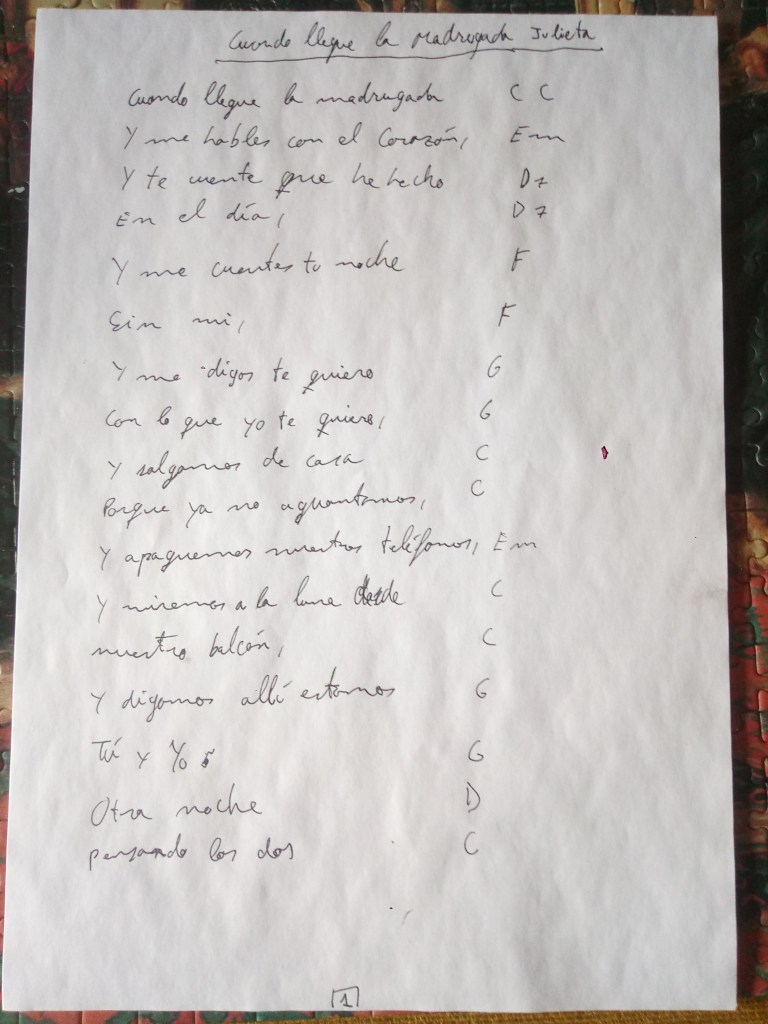 Cuando llegue la Madrugada Julieta
Cuando llegue la madrugada C C
Y me hables con el Corazón, Em
Y te cuente que he hecho D7
En el día, D7
Y me cuentes tu noche F
Sin mi, F
Y me digas te quiero G
Con lo que yo te quiero, G
Y salgamos de casa C
Porque ya no aguantamos, C
Y apaguemos nuestros teléfonos, Em
Y miremos a la luna desde C
nuestro balcón, C
Y digamos allí estamos G
Tú y Yo G
Otra noche D
pensando los dos C
1